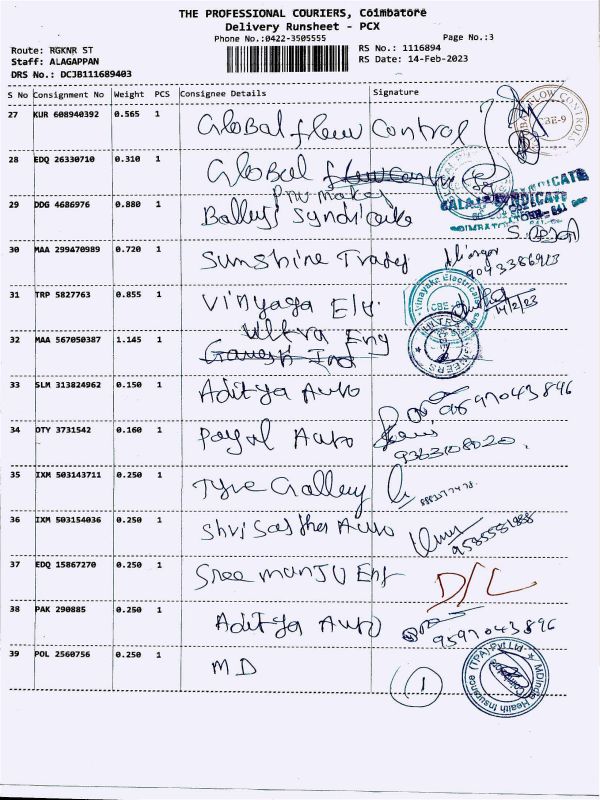 THE PROFESSIONAL COURIERS, Coimbatore
Delivery Runsheet - PCX
Phone No.:0422-3505555
Page No.:3
Route: RGKNR ST
Staff: ALAGAPPAN
DRS No.: DCJB111689403
RS No.: 1116894
RS Date: 14-Feb-2023
S No Consignment No Weight PCS Consignee Details Signature
27 KUR 608940392 0.565 1 Global flow Control
CBE-9
28 EDQ 26330710 0.310 1 Global
Pnumaker
29 DDG 4686976 0.880 1 Balleys Syndicate
SYNDICATE
30 MAA 299470989 0.720 1 Sunshine Trades
31 TRP 5827763 0.855 1 Vinyaga Ele.
Vinayaka Electricals
CBE
14/2/23
Ulltra Eng
32 MAA 567050387 1.145 1 Ganesh Ind
33 SLM 313824962 0.150 1 Aditya Auto
34 OTY 3731542 0.160 1 Payal Auto
9363108020
35 IXM 503143711 0.250 1 Tyre Gallery
36 IXM 503154036 0.250 1 Shri Sastha Auto
37 EDQ 15867270 0.250 1 Sree manju Ent D/L
38 PAK 290885 0.250 1 Aditya Auto
9597043896
39 POL 2560756 0.250 1 MD
1
MDIndia Health Insurance (TPA) Pvt.Ltd.